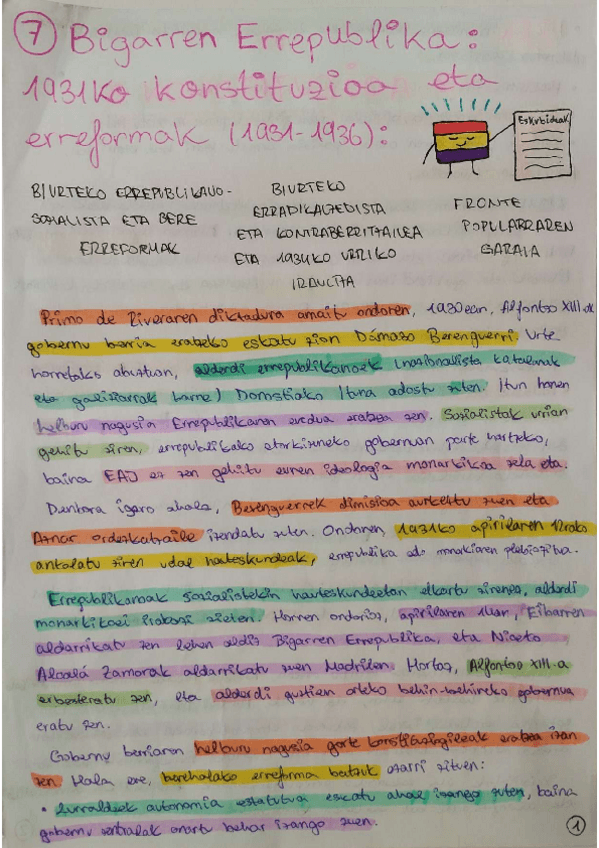 7 Bigarren Errepublika:
1931ko konstituzioa eta
erreformak (1931-1936):
Eskubideak
BIURTEKO ERREPUBLIKANO-
SOZIALISTA ETA BERE
ERREFORMAK
BIURTEKO
ERRADIKALZEDISTA
ETA KONTRAERREFORMISTA
ETA 1934KO URRIKO
IRAULTZA
FRONTE
POPULARRAREN
GARAIA
Primo de Riveraren diktadura amaitu ondoren, 1930ean, Alfontso XIII.ak
gobernu berria eratzeko eskatu zion Dámaso Berenguerri. Urte
horretako abuztuan, alderdi errepublikanoek (nazionalista katalanak
eta galiziarrak barne) Donostiako Ituna adostu zuten. Itun honen
helburu nagusia Errepublikaren eredua eratzea zen. Sozialistak urrian
gehitu ziren, errepublikako etorkizuneko gobernuan parte hartzeko,
baina EAJ ez zen gehitu euren ideologia monarkikoa zela eta.
Denbora igaro ahala, Berenguerrek dimisioa aurkeztu zuen eta
Aznar ordezkatzaile izendatu zuten. Ondoren, 1931ko apirilaren 12rako
antolatu ziren udal hauteskundeak, errepublika edo monarkiaren plebiszitua.
Errepublikanoak sozialistekin hauteskundeetan elkartu zirenez, alderdi
monarkikoei irabazi zieten. Horren ondorioz, apirilaren 14an, Eibarren
aldarrikatu zen lehen aldiz Bigarren Errepublika, eta Niceto
Alcalá Zamorak aldarrikatu zuen Madrilen. Hortaz, Alfontso XIII.a
erbesteratu zen, eta alderdi guztien arteko behin-behineko gobernua
eratu zen.
Gobernu berriaren helburu nagusia gorte konstituzigileak eratzea izan
zen. Hala ere, berehalako erreforma batzuk ezarri zituen:
• Lurraldeek autonomia estatutua eskatu ahal izango zuten, baina
gobernu zentralak onartu behar izango zuen.
1